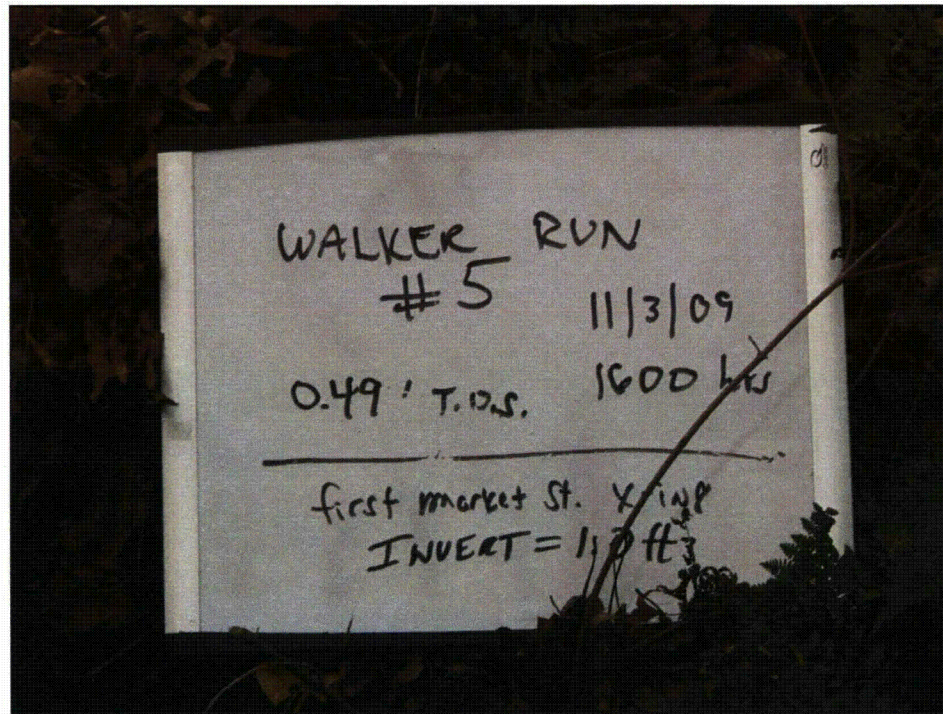 WALKER RUN
#5
11/3/09
0.49' T.O.S.
1600 hrs
first market St. Xing
INVERT = ft